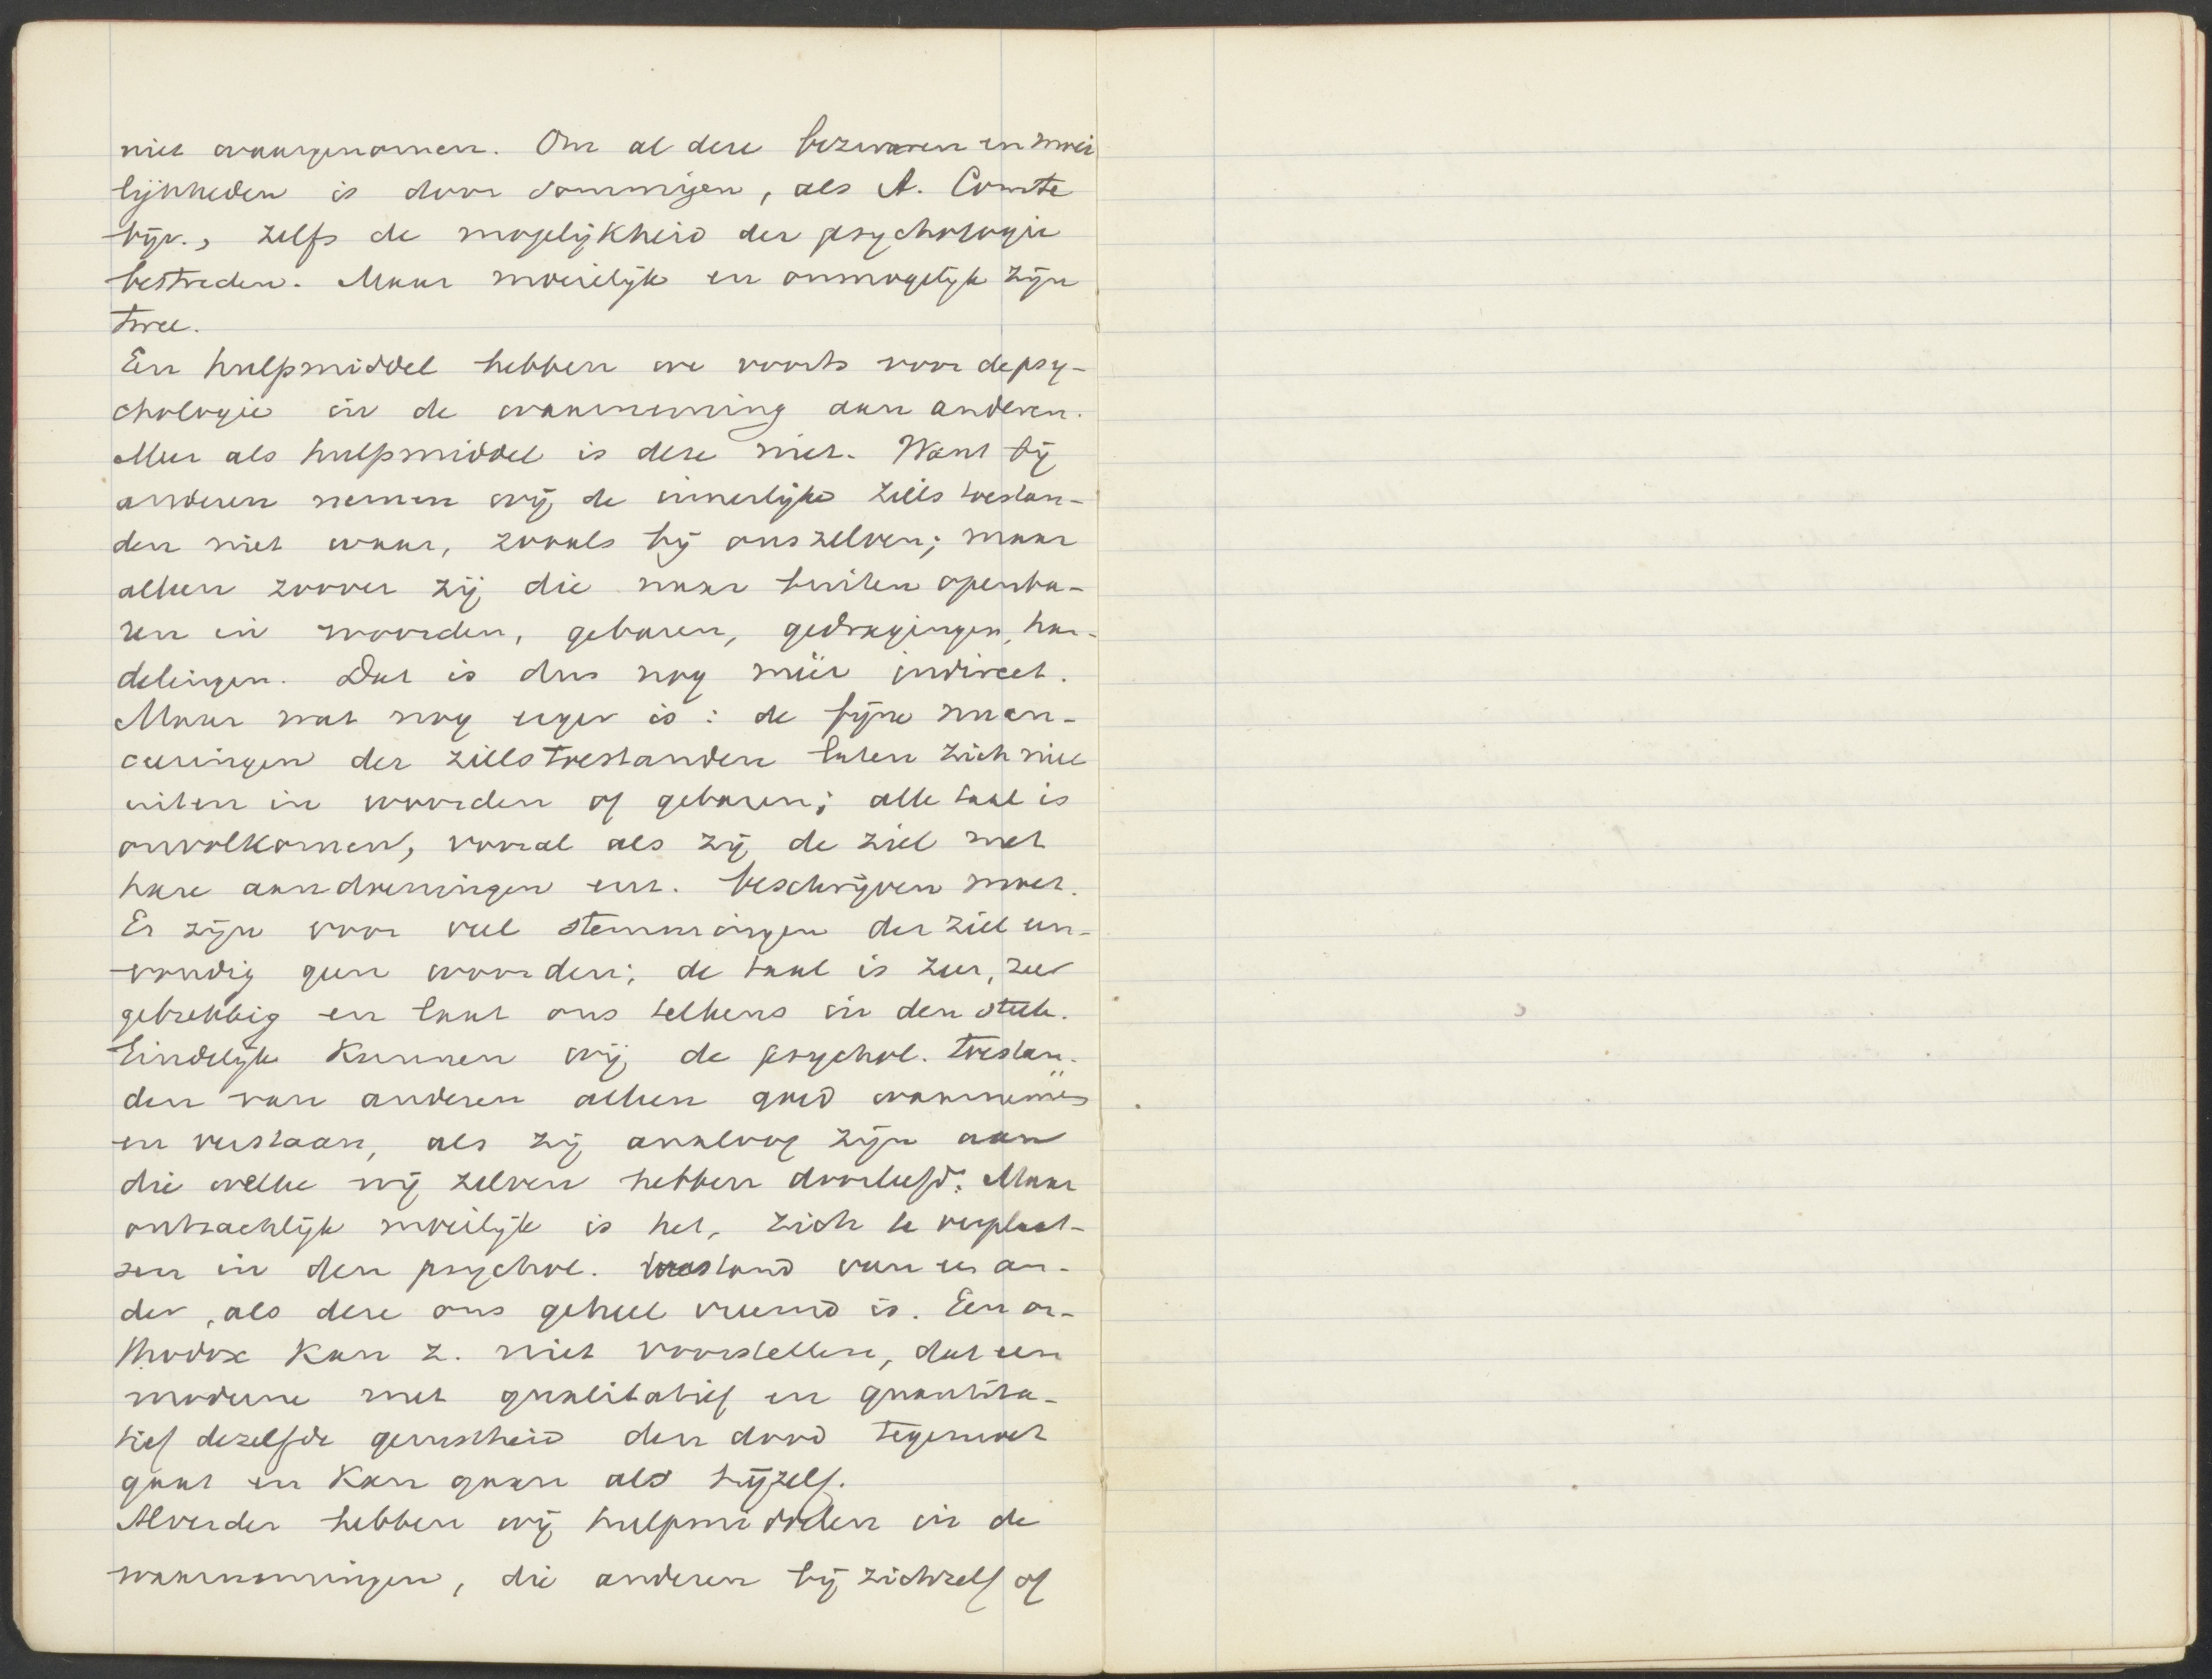 niet waargenomen. Om al deze bezwaren en moei
lijkheden is door sommigen, als A. Comte
bijv., zelfs de mogelijkheid der psychologie
bestreden. Maar moeielijk en onmogelijk zijn
twee.
Een hulpmiddel hebben we voorts voor de psy-
chologie in de waarneming aan anderen.
Meer als hulpmiddel is deze niet. Want bij
anderen nemen wij de innerlijke ziels toestan-
den niet waar, zooals bij ons zelven; maar
alleen zoover zij die naar buiten openba-
ren in woorden, gebaren, gedragingen, han-
delingen. Dat is dus nog méér indirect.
Maar wat nog erger is: de fijne nuan-
ceeringen der zielstoestanden laten zich niet
uiten in woorden of gebaren; alle taal is
onvolkomen, vooral als zij de ziel met
hare aandoeningen enz. beschrijven moet.
Er zijn voor veel stemmingen der ziel een-
voudig geen woorden; de taal is zeer, zeer
gebrekkig en laat ons telkens in den steek.
Eindelijk kunnen wij de psychol. toestan-
den van anderen alleen goed waarnemen
en verstaan, als zij analoog zijn aan
die welke wij zelven hebben doorleefd. Maar
ontzachlijk moeilijk is het, zich te verplaat-
sen in den psychol. toestand van een an-
der, als deze ons geheel vreemd is. Een or-
thodox kan z. niet voorstellen, dat een
moderne met qualitatief en quantita-
tief dezelfde gerustheid den dood tegemoet
gaat en kan gaan als hijzelf.
Alverder hebben wij hulpmiddelen in de
waarnemingen, die anderen bij zichzelf of